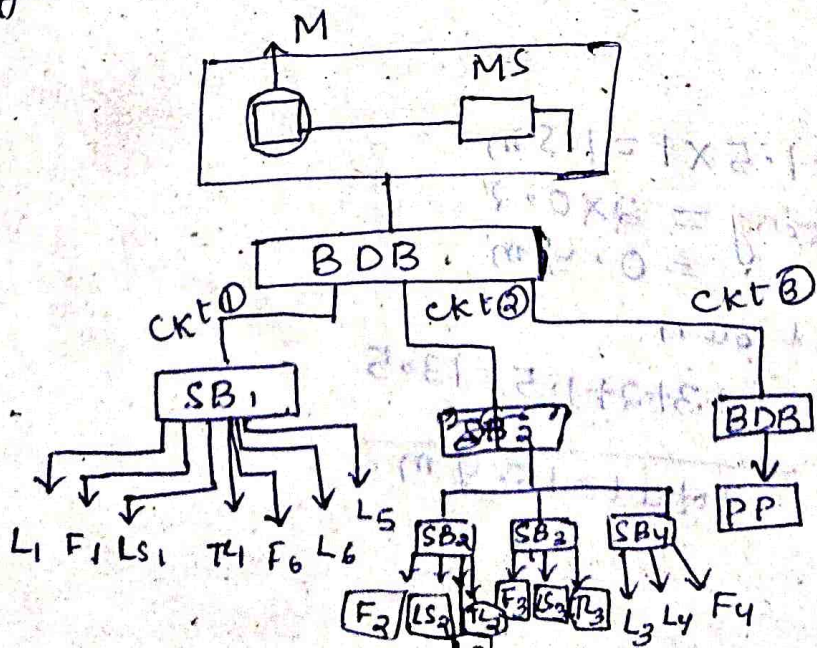 M
MS
BDB
Ckt ①
Ckt ②
Ckt ③
SB1
SB2
BDB
PP
L1 F1 LS1 TL1 F6 L6 L5
SB2 SB3 SB4
F2 LS2 TL2 F3 LS3 TL3 L3 L4 F4